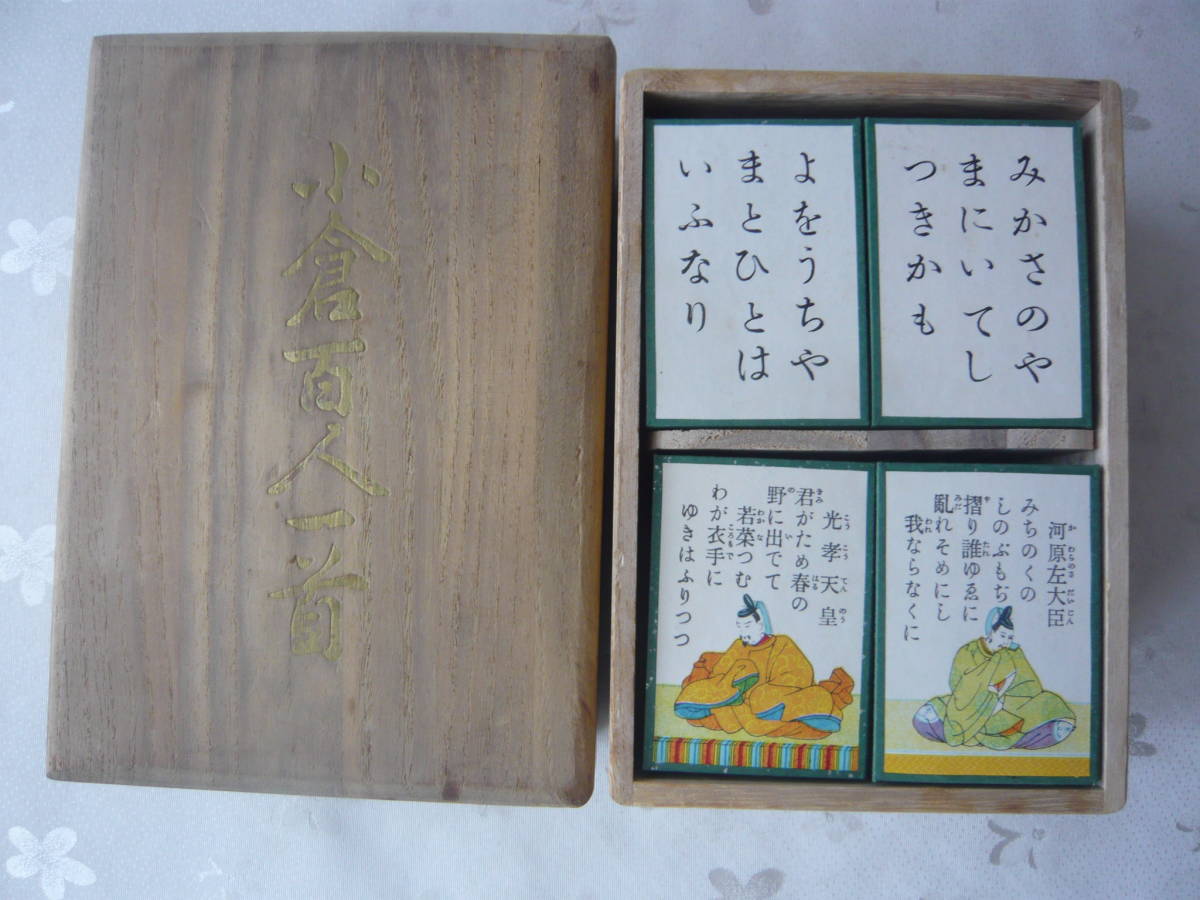 小倉百人一首
よをうちや
まとひとは
いふなり
みかさのや
まにいてし
つきかも
光孝天皇
君がため春の
野に出でて
若菜つむ
わが衣手に
ゆきはふりつつ
河原左大臣
みちのくの
しのぶもぢ
摺り誰ゆゑに
亂れそめにし
我ならなくに